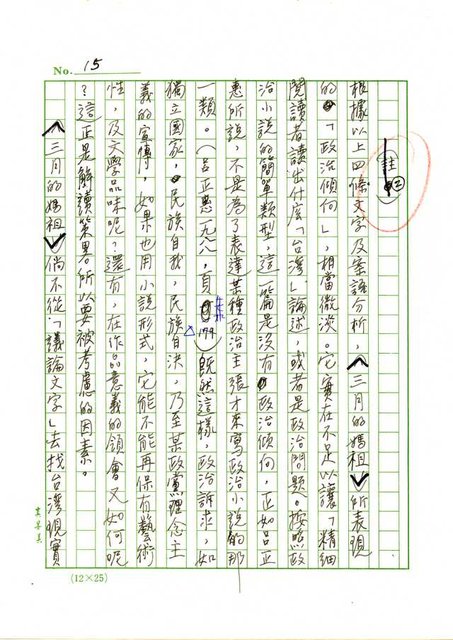 No. 15
註②
根據以上四條文字及案語分析，〈三月的媽祖〉所表現
的「政治傾向」，相當微淡。它實在不足以讓「精細
閱讀者讀出什麼「台灣」論述，或者是政治問題。按照政
治小說的簡單類型，這一篇是沒有政治傾向，正如呂正
惠所說，不是為了表達某種政治主張才來寫政治小說的那
一類。（呂正惠一九八八，頁179）既然這樣，政治訴求，如
獨立國家，民族自救，民族自決，乃至某政黨理念主
義的宣傳，如果也用小說形式，它能不能再保有藝術
性，及文學品味呢？還有，在作品意義的領會又如何呢
？這正是解讀策略所以要被考慮的因素。
〈三月的媽祖〉倘不從「議論文字」去找台灣現實
(12×25)